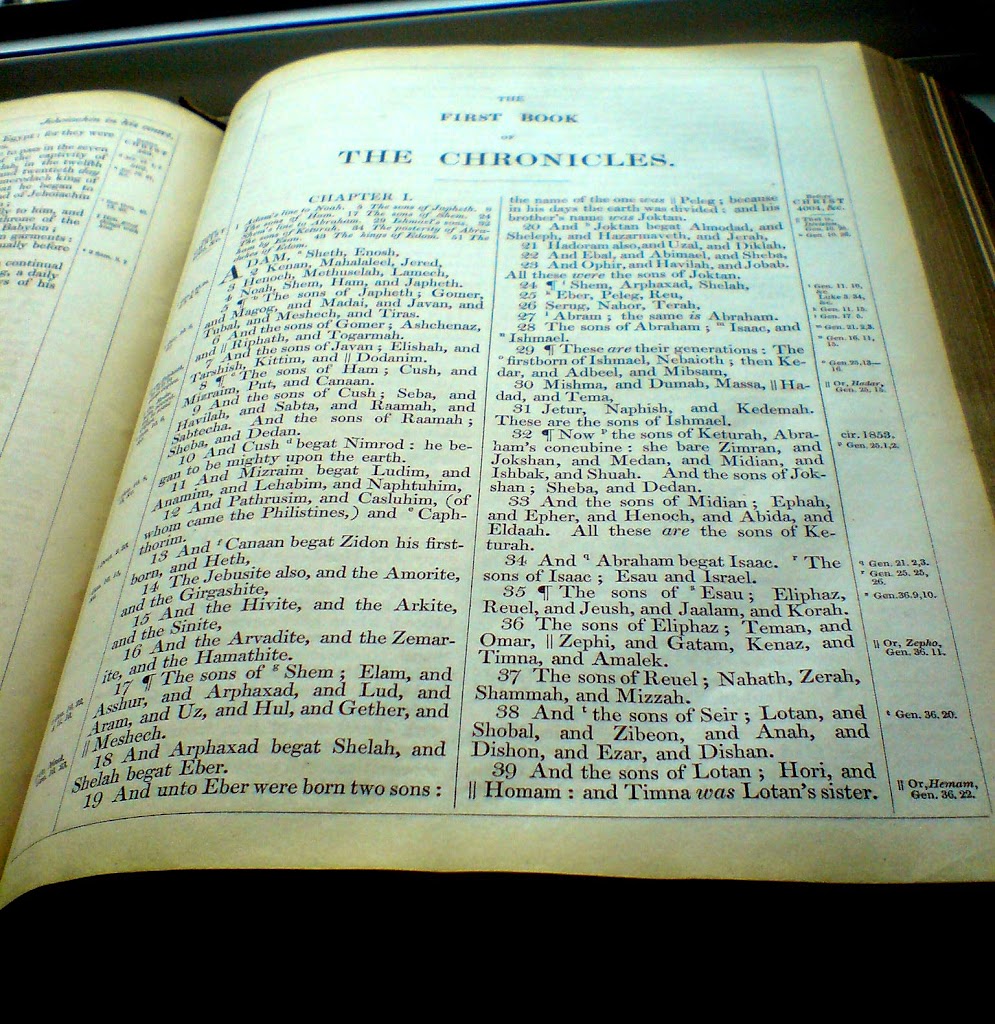 Jehoiachin in his court.
Egypt: for they were
to pass in the seven
of the captivity of
in the twelfth
and twentieth day
merodach king of
he began to
of Jehoiachin
ly to him, and
throne of the
Babylon;
garments:
ually before
continual
a daily
s of his
THE
FIRST BOOK
OF
THE CHRONICLES.
CHAPTER I.
1 Adam's line to Noah. 5 The sons of Japheth. 8
The sons of Ham. 17 The sons of Shem. 24
Shem's line to Abraham. 29 Ishmael's sons. 32
The sons of Keturah. 34 The posterity of Abra-
ham by Esau. 43 The kings of Edom. 51 The
dukes of Edom.
ADAM, Sheth, Enosh,
2 Kenan, Mahalaleel, Jered,
3 Henoch, Methuselah, Lamech,
4 Noah, Shem, Ham, and Japheth.
5 ¶ The sons of Japheth; Gomer,
and Magog, and Madai, and Javan, and
Tubal, and Meshech, and Tiras.
6 And the sons of Gomer; Ashchenaz,
and || Riphath, and Togarmah.
7 And the sons of Javan; Elishah, and
Tarshish, Kittim, and || Dodanim.
8 ¶ The sons of Ham; Cush, and
Mizraim, Put, and Canaan.
9 And the sons of Cush; Seba, and
Havilah, and Sabta, and Raamah, and
Sabtecha. And the sons of Raamah;
Sheba, and Dedan.
10 And Cush d begat Nimrod: he be-
gan to be mighty upon the earth.
11 And Mizraim begat Ludim, and
Anamim, and Lehabim, and Naphtuhim,
12 And Pathrusim, and Casluhim, (of
whom came the Philistines,) and e Caph-
thorim.
13 And f Canaan begat Zidon his first-
born, and Heth,
14 The Jebusite also, and the Amorite,
and the Girgashite,
15 And the Hivite, and the Arkite,
and the Sinite,
16 And the Arvadite, and the Zemar-
ite, and the Hamathite.
17 ¶ The sons of g Shem; Elam, and
Asshur, and Arphaxad, and Lud, and
Aram, and Uz, and Hul, and Gether, and
|| Meshech.
18 And Arphaxad begat Shelah, and
Shelah begat Eber.
19 And unto Eber were born two sons:
the name of the one was || Peleg; because
in his days the earth was divided: and his
brother's name was Joktan.
20 And h Joktan begat Almodad, and
Sheleph, and Hazarmaveth, and Jerah,
21 Hadoram also, and Uzal, and Diklah,
22 And Ebal, and Abimael, and Sheba,
23 And Ophir, and Havilah, and Jobab.
All these were the sons of Joktan.
24 ¶ i Shem, Arphaxad, Shelah,
25 k Eber, Peleg, Reu,
26 Serug, Nahor, Terah,
27 l Abram; the same is Abraham.
28 The sons of Abraham; m Isaac, and
n Ishmael.
29 ¶ These are their generations: The
o firstborn of Ishmael, Nebaioth; then Ke-
dar, and Adbeel, and Mibsam,
30 Mishma, and Dumah, Massa, || Ha-
dad, and Tema,
31 Jetur, Naphish, and Kedemah.
These are the sons of Ishmael.
32 ¶ Now p the sons of Keturah, Abra-
ham's concubine: she bare Zimran, and
Jokshan, and Medan, and Midian, and
Ishbak, and Shuah. And the sons of Jok-
shan; Sheba, and Dedan.
33 And the sons of Midian; Ephah,
and Epher, and Henoch, and Abida, and
Eldaah. All these are the sons of Ke-
turah.
34 And q Abraham begat Isaac. r The
sons of Isaac; Esau and Israel.
35 ¶ The sons of s Esau; Eliphaz,
Reuel, and Jeush, and Jaalam, and Korah.
36 The sons of Eliphaz; Teman, and
Omar, || Zephi, and Gatam, Kenaz, and
Timna, and Amalek.
37 The sons of Reuel; Nahath, Zerah,
Shammah, and Mizzah.
38 And t the sons of Seir; Lotan, and
Shobal, and Zibeon, and Anah, and
Dishon, and Ezar, and Dishan.
39 And the sons of Lotan; Hori, and
|| Homam: and Timna was Lotan's sister.
Before
CHRIST
4004, &c.
|| That is,
Division,
i Gen. 11. 10,
&c.
Luke 3. 34,
&c.
k Gen. 11. 15.
l Gen. 17. 5.
m Gen. 21. 2, 3.
n Gen. 16. 11,
15.
o Gen. 25. 13—
16.
|| Or, Hadar,
Gen. 25. 15.
cir. 1853.
p Gen. 25. 1, 2.
q Gen. 21. 2, 3.
r Gen. 25. 25,
26.
s Gen. 36. 9, 10.
|| Or, Zepho,
Gen. 36. 11.
t Gen. 36. 20.
|| Or, Hemam,
Gen. 36. 22.